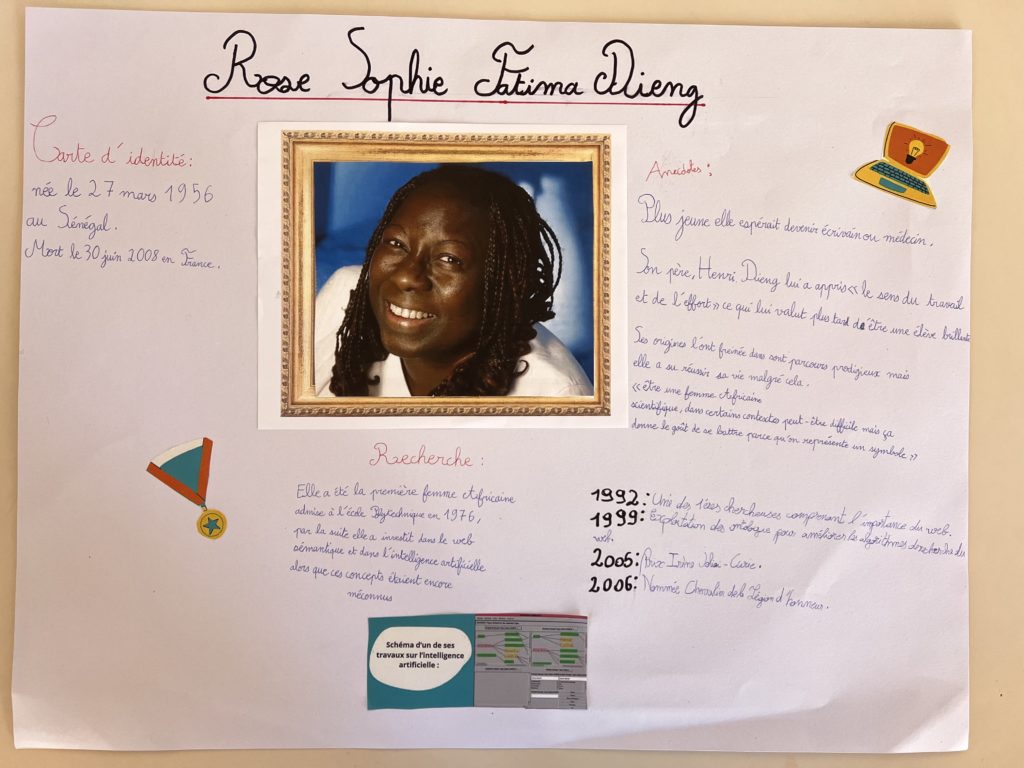 Rose Sophie Fatima Dieng
Carte d'identité:
née le 27 mars 1956
au Sénégal.
Mort le 30 juin 2008 en France.
Anecdotes:
Plus jeune elle espérait devenir écrivain ou médecin.
Son père, Henri Dieng lui a appris « le sens du travail
et de l'effort » ce qui lui valut plus tard d'être une élève brillante
Ses origines l'ont freinée dans sont parcours prodigieux mais
elle a su réussir sa vie malgré cela.
« être une femme Africaine
scientifique, dans certains contextes peut-être difficile mais ça
donne le goût de se battre parce qu'on représente un symbole »
Recherche:
Elle a été la première femme Africaine
admise à l'école Polytechnique en 1976,
par la suite elle a investit dans le web
sémantique et dans l'intelligence artificielle
alors que ces concepts étaient encore
méconnus
1992: Une des 1ères chercheuses comprenant l'importance du web.
1999: Exploitation des ontologie pour améliorer les algorithmes de recherche du
web.
2005: Prix Irène Joliot-Curie.
2006: Nommée Chevalier de la Légion d'Honneur.
Schéma d'un de ses
travaux sur l'intelligence
artificielle :